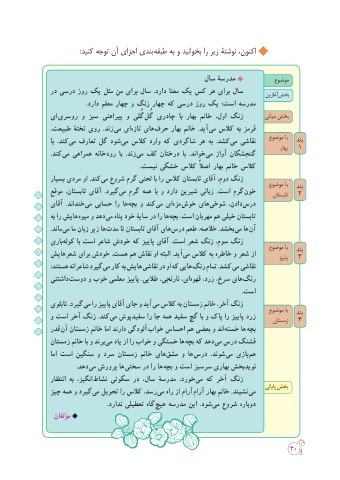 اکنون، نوشتهٔ زیر را بخوانید و به طبقه‌بندی اجزای آن توجه کنید:
موضوع
مدرسهٔ سال
بخش آغازین
سال برای هر کس یک معنا دارد. سال برای من مثل یک روز درسی در
مدرسه است؛ یک روز درسی که چهار زنگ و چهار معلم دارد.
بخش میانی
زنگ اول، خانم بهار با چادری گل‌گلی و پیراهنی سبز و روسری‌ای
قرمز به کلاس می‌آید. خانم بهار حرف‌های تازه‌ای می‌زند. روی تختهٔ طبیعت،
بند ۱
با موضوع بهار
نقاشی می‌کشد. به هر شاگردی که وارد کلاس می‌شود گل تعارف می‌کند. با
گنجشکان آواز می‌خواند. با درختان کف می‌زند. با رودخانه همراهی می‌کند.
کلاس خانم بهار اصلاً کلاس خشکی نیست.
زنگ دوم، آقای تابستان کلاس را با لحنی گرم شروع می‌کند. او مردی بسیار
بند ۲
با موضوع تابستان
خون‌گرم است. زبانی شیرین دارد و با همه گرم می‌گیرد. آقای تابستان، موقع
درس‌دادن، شوخی‌های خوش‌مزه‌ای می‌کند و بچه‌ها را حسابی می‌خنداند. آقای
تابستان خیلی هم مهربان است. بچه‌ها را در سایهٔ خود پناه می‌دهد و میوه‌هایش را به
آن‌ها می‌بخشد. خلاصه، طعم درس‌های آقای تابستان تا مدت‌ها زیر زبان ما می‌ماند.
زنگ سوم، زنگ شعر است. آقای پاییز که خودش شاعر است با کوله‌باری
بند ۳
با موضوع پاییز
از شعر و خاطره به کلاس می‌آید. البته او نقاش هم هست. خودش برای شعرهایش
نقاشی می‌کشد. تمام رنگ‌هایی که او در نقاشی‌هایش به کار می‌گیرد شاعرانه هستند؛
رنگ‌های سرخ، زرد، قهوه‌ای، نارنجی، طلایی. پاییز معلمی خوب و دوست‌داشتنی
است.
زنگ آخر، خانم زمستان به کلاس می‌آید و جای آقای پاییز را می‌گیرد. تابلوی
بند ۴
با موضوع زمستان
زرد پاییز را پاک و با گچ سفید همه جا را سفیدپوش می‌کند. زنگ آخر است و
بچه‌ها خسته‌اند و بعضی هم احساس خواب‌آلودگی دارند اما خانم زمستان آن‌قدر
قشنگ درس می‌دهد که بچه‌ها خستگی و خواب را از یاد می‌برند و با خانم زمستان
هم‌بازی می‌شوند. درس‌ها و مشق‌های خانم زمستان سرد و سنگین است اما
نویدبخش بهاری سرسبز است و بچه‌ها را در سختی‌ها پرورش می‌دهد.
بخش پایانی
زنگ آخر که می‌خورد، مدرسهٔ سال، در سکوتی نشاط‌انگیز، به انتظار
می‌نشیند. خانم بهار آرام آرام از راه می‌رسد، کلاس را تحویل می‌گیرد و همه چیز
دوباره شروع می‌شود. این مدرسه هیچ‌گاه تعطیلی ندارد.
مؤلفان
۳۰